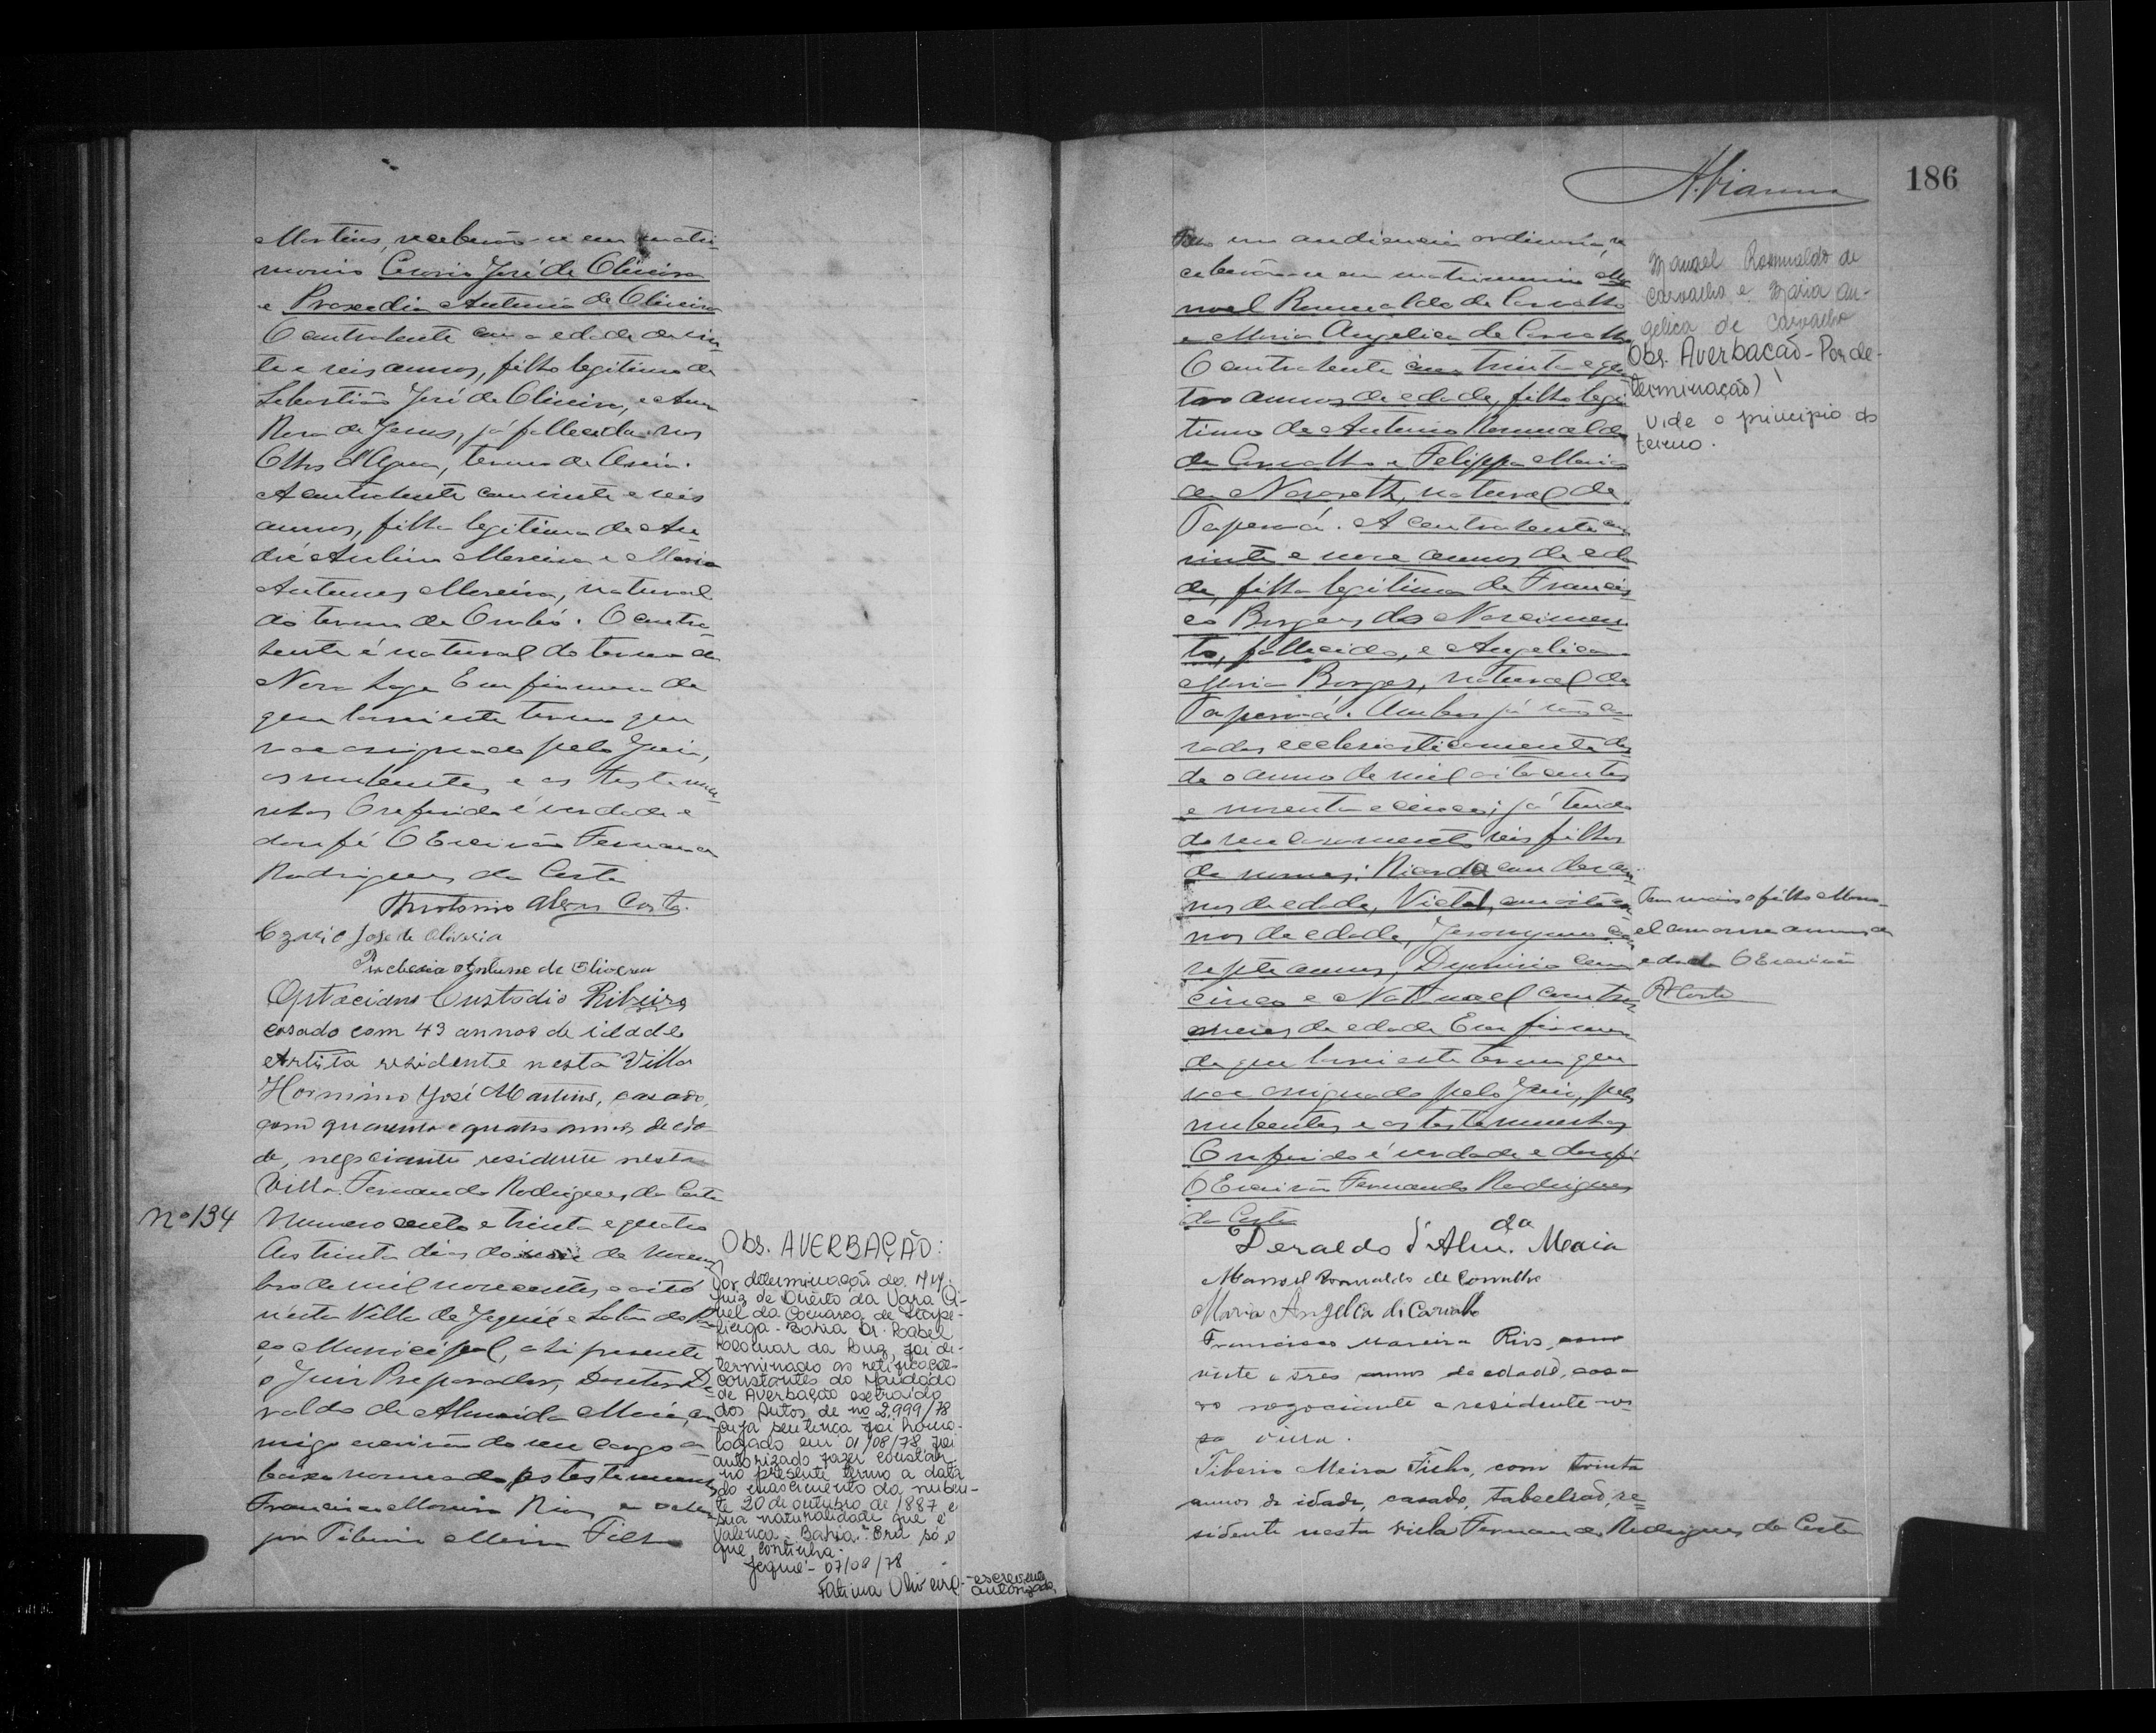 Martins, receberão-se em matri-
monio Cesario José de Oliveira
e Praxedia Antunia de Oliveira
O contratente com a edade de vin-
te e seis annos, filho legitimo de
Sebastião José de Oliveira, e Anna
Rosa de Jesus, já fallecida nos
Olhos d'Agua, termo de Areia.
A contratente com vinte e seis
annos, filha legitima de An-
dré Moreira e Maria
Antunes Moreira, natural
do termo de . O contra-
tente é natural do termo de
Nova Lage Em firmesa do
que lavrei este termo que
vae assignado pelo Juiz,
os nubentes, e as testemu-
nhas O referido é verdade e
dou fé O Escrivão Fernando
Rodrigues da Costa
Alves Costa.
José de Oliveira
de Oliveira
Custodio Ribeiro
casado com 43 annos de idade
Artista residente nesta Villa
Hormino José Martins, casado,
com quarenta e quatro annos de eda-
de, negociante residente nesta
Villa. Fernando Rodrigues da Costa
Nº 134
Numero cento e trinta e quatro
Aos trinta dias do mez de Novem-
bro de mil novecentos e oito
nésta Villa de Jequié e Salão do Pa-
ço Municipal, ahi presente
o Juiz Preparador, Doutor De-
raldo de Almeida Maia, co-
migo escrivão do seu cargo a-
baixo nomeado, as testemunhas
Francisco Moreira Rios, e
Tiberio Meira Filho
Obs. AVERBAÇÃO:
Por determinação do MM.
Juiz de Direito da Vara Ci-
vel da Comarca de Itape-
tinga - Bahia Dr.
da , foi de-
terminado as retificações
constantes do Mandado
de Averbação extraido
dos Autos de nº 2.999/78
cuja sentença foi homo-
logado em 01/08/78, foi
autorizado fazer constar
no presente termo a data
do nascimento da nuben-
te 20 de outubro de 1887, e
sua naturalidade que é
Valença - Bahia. Era só o
que continha.
Jequié - 07/08/78
Fatima Oliveira - escrevente
autorizada,
186
em audiencia ordinaria, re
ceberão-se em matrimonio Ma
noel Romualdo de Carvalho
e Maria Angelica de Carvalho
O contratente com trinta e qua
tro annos de edade, filho legi
timo de Antonio Romualdo
de Carvalho e Felippa Maria
de Nazareth, natural de
Taperoá. A contratente com
vinte e nove annos de eda
de, filha legitima de Francis
co Borges do Nascimen
to, fallecido, e Angelica
Maria Borges, natural de
Taperoá. Ambos já são ca
sados ecclesiasticamente des
de o anno de mil oitocentos
e noventa e cinco; já tendo
do seu casamento seis filhos
de nomes: Ricardo com dez an
nos de edade, Victal, com oito an
nos de edade, Jeronymo com
septe annos, Dyonisio com
cinco e Natanael com tres
mezes de edade Em firmesa
do que lavrei este termo que
vae assignado pelo Juiz, pelos
nubentes e as testemunhas
O referido é verdade e dou fé
O Escrivão Fernando Rodrigues
da Costa
Deraldo d'Alm.da Maia
Manoel Romualdo de Carvalho
Maria Angelica de Carvalho
Francisco Moreira Rios, com
vinte e tres annos de edade, casa-
do negociante e residente nes-
ta villa.
Tiberio Meira Filho, com trinta
annos de idade, casado, tabellião, re=
sidente nesta villa Fernando Rodrigues da Costa
Manoel Romualdo de
Carvalho e Maria An-
gelica de Carvalho
Obs. Averbação - Por de-
terminação)
Vide o principio do
termo.
Tem mais o filho Mano-
el com annos de
edade O Escrivão
RCosta